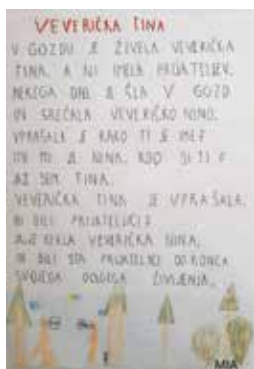 VEVERIČKA TINA
V GOZDU JE ŽIVELA VEVERIČKA
TINA, A NI IMELA PRIJATELJEV.
NEKEGA DNE JE ŠLA V GOZD
IN SREČALA VEVERIČKO NINO.
VPRAŠALA JE KAKO TI JE IME?
IME MI JE NINA, KDO SI TI?
AZ SEM TINA.
VEVERIČKA TINA JE VPRAŠALA,
BI BILI PRIJATELJICI?
JE REKLA VEVERIČKA NINA,
IN BILI STA PRIJATELJICI DO KONCA
SVOJEGA DOLGEGA ŽIVLJENJA.
MIA